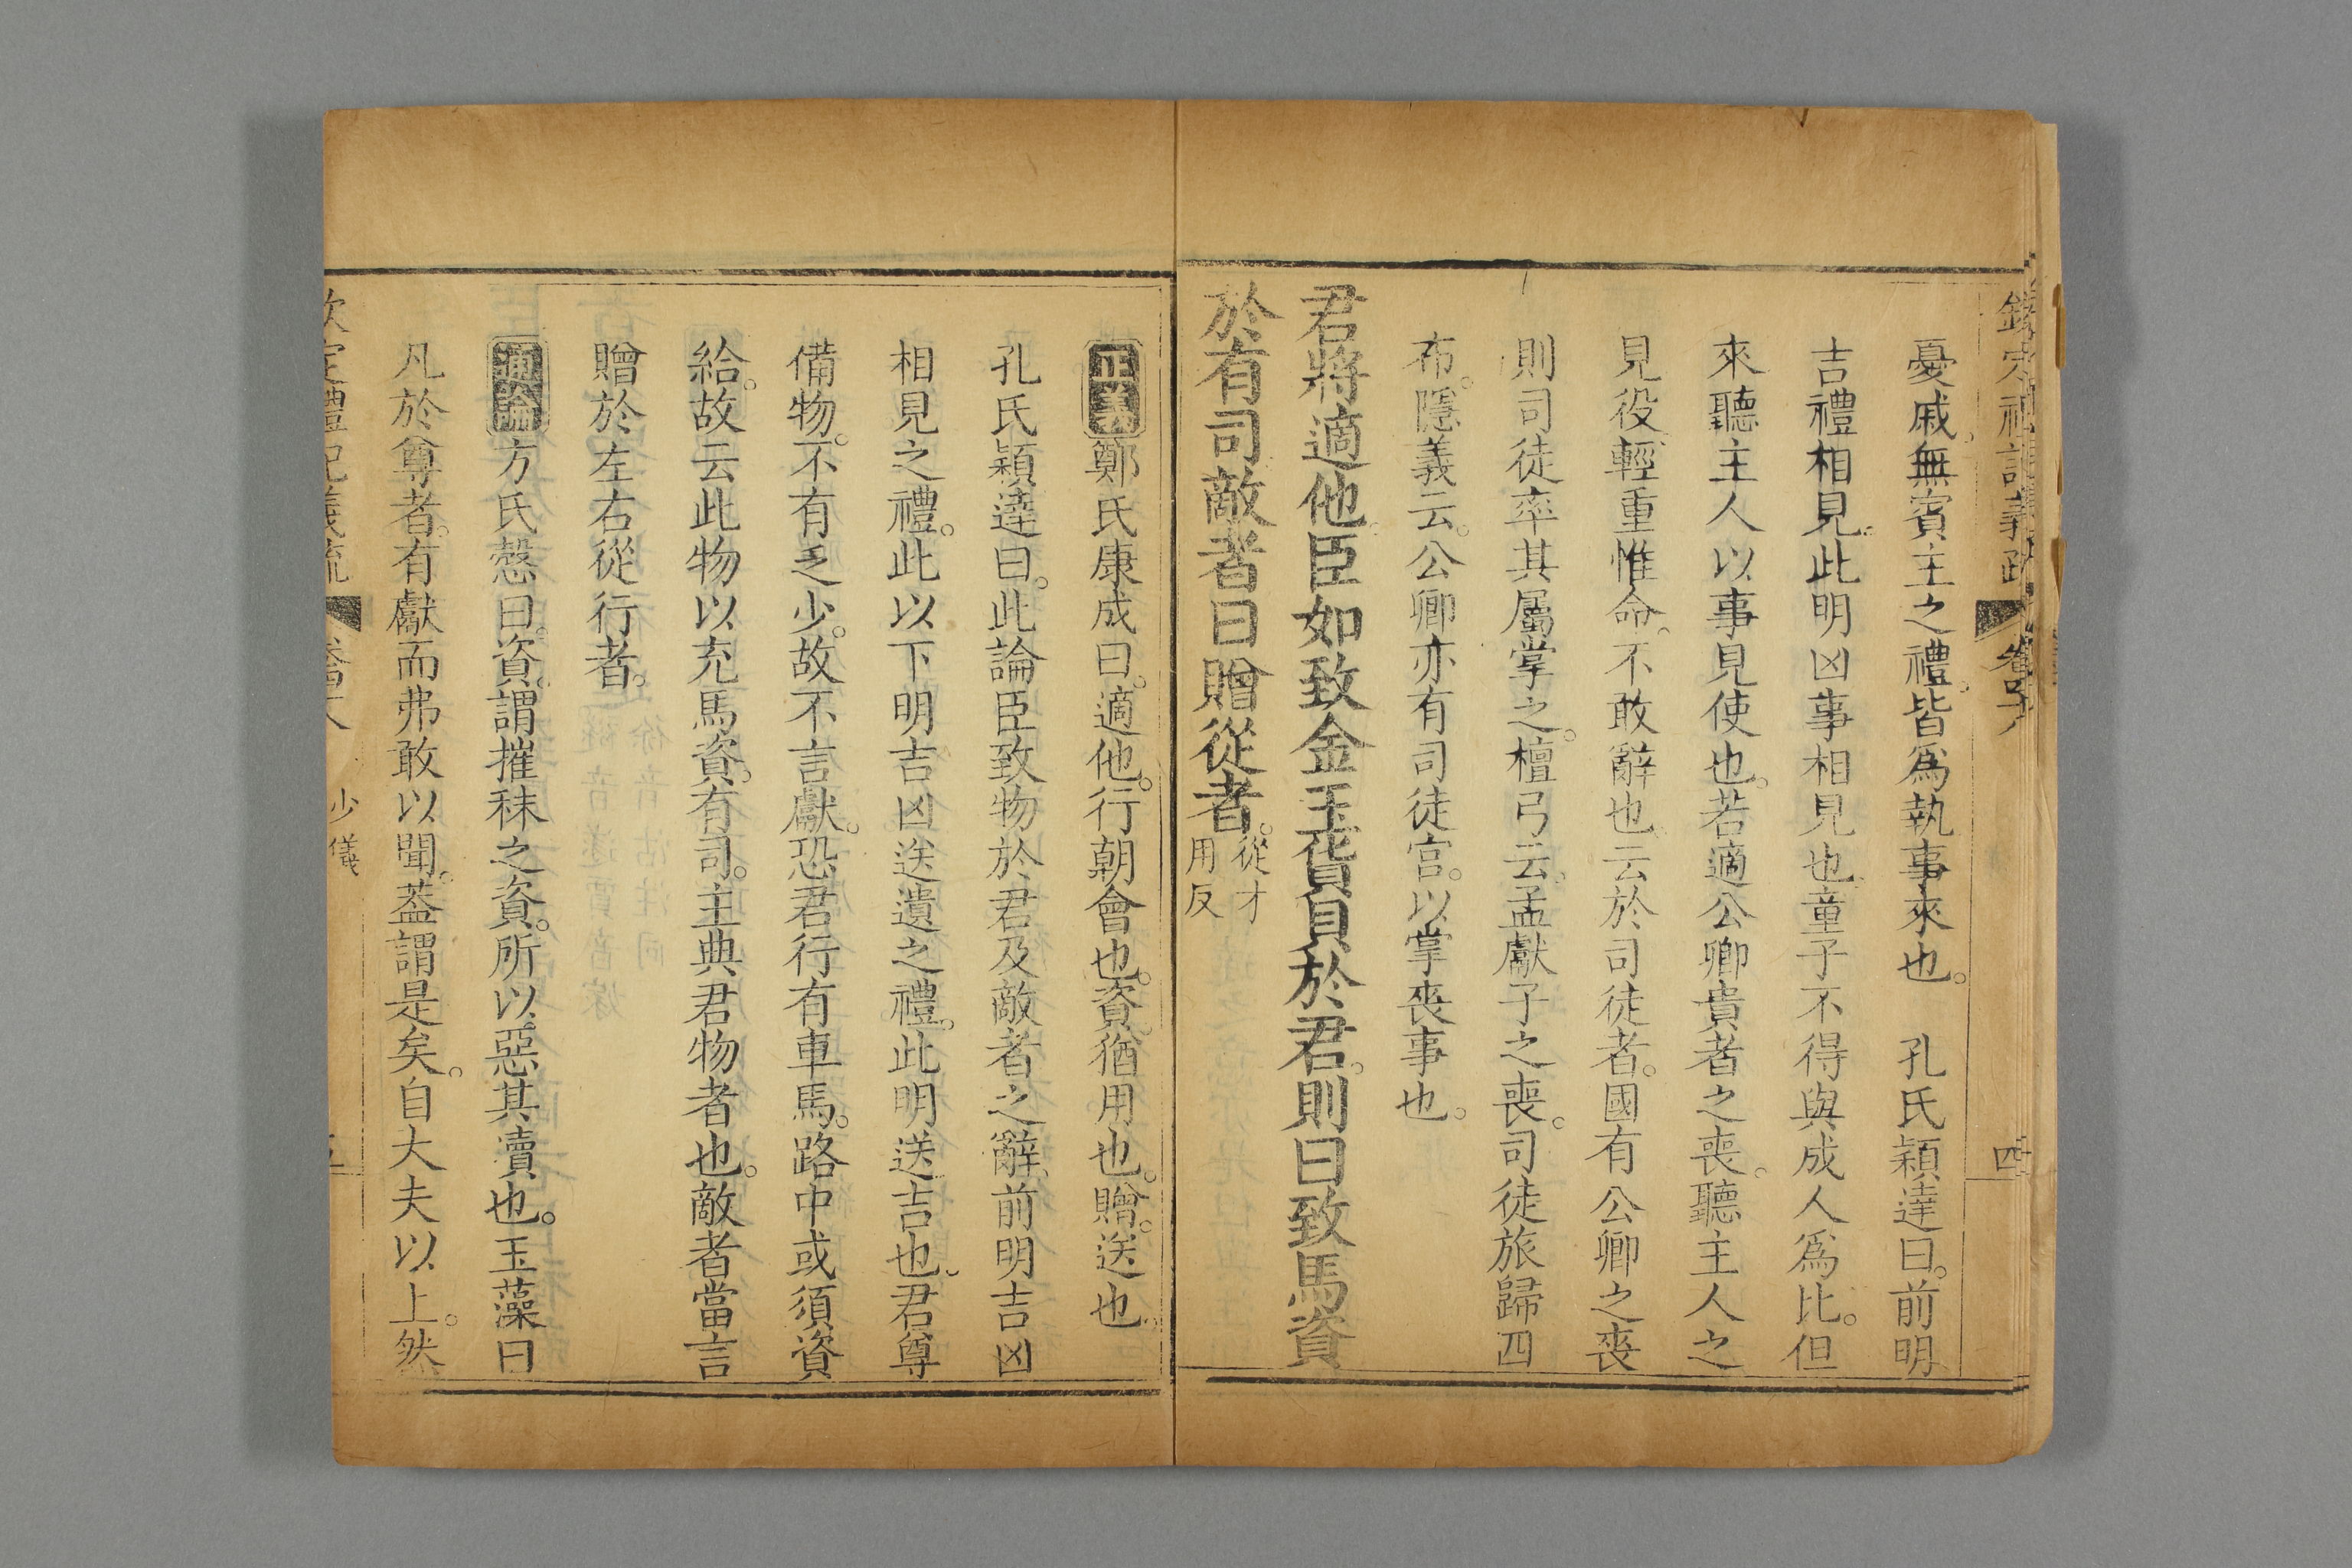 憂戚。無賓主之禮。皆爲執事來也。　孔氏穎達曰。前明
吉禮相見。此明凶事相見也。童子不得與成人爲比。但
來聽主人以事見使也。若適公卿貴者之喪。聽主人之
見役輕重惟命。不敢辭也。云於司徒者。國有公卿之喪
則司徒率其屬掌之。檀弓云。孟獻子之喪。司徒旅歸四
布。隱義云。公卿亦有司徒官。以掌喪事也。
君將適他。臣如致金玉貨貝於君。則曰致馬資
於有司。敵者曰贈從者。從才
用反
正義鄭氏康成曰。適他。行朝會也。資。猶用也。贈。送也。
孔氏穎達曰。此論臣致物於君及敵者之辭、前明吉凶
相見之禮。此以下明吉凶送遺之禮。此明送吉也、君尊
備物。不有乏少。故不言獻。恐君行有車馬。路中或須資
給。故云此物以充馬資。有司。主典君物者也。敵者當言
贈於左右從行者。
通論方氏慤曰。資。謂摧秣之資。所以惡其瀆也。玉藻曰
凡於尊者。有獻而弗敢以聞。葢謂是矣。自大夫以上。然
少儀